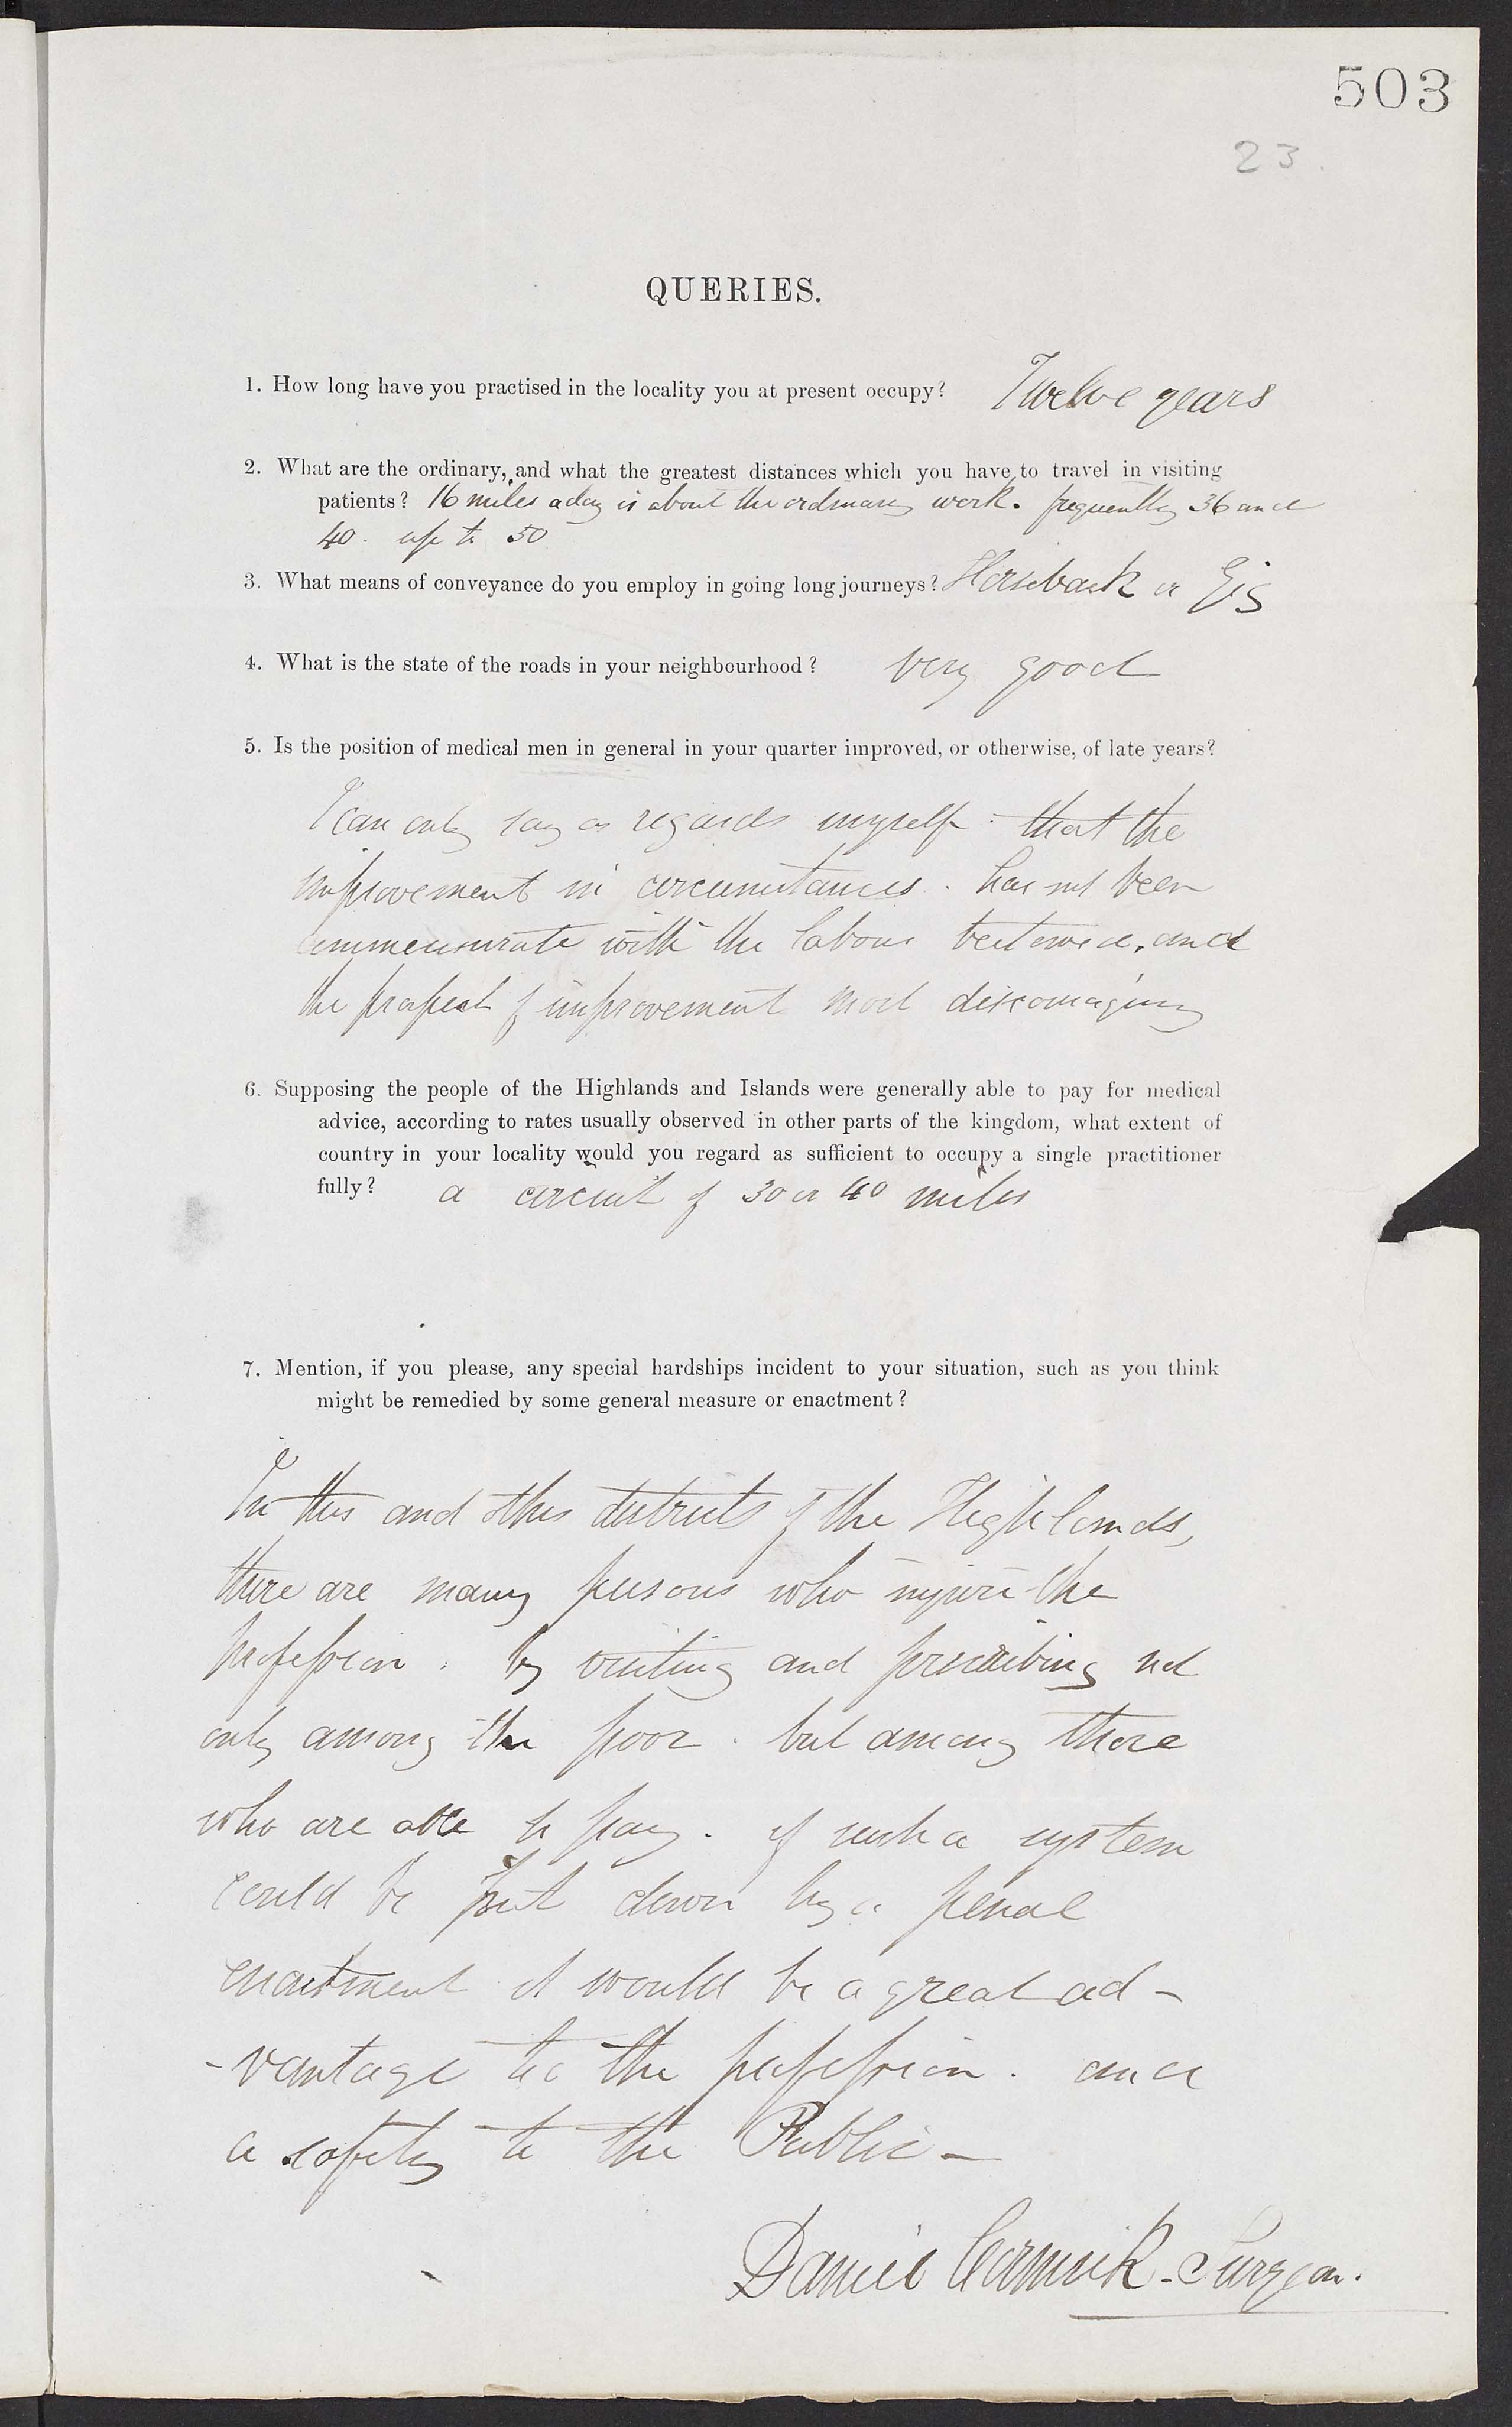 503
23.
QUERIES.
1. How long have you practised in the locality you at present occupy? Twelve years
2. What are the ordinary, and what the greatest distances which you have to travel in visiting
patients? 16 miles a day is about the ordinary work. frequently 36 and
40. up to 50
3. What means of conveyance do you employ in going long journeys? Horseback or Gig
4. What is the state of the roads in your neighbourhood? Very good
5. Is the position of medical men in general in your quarter improved, or otherwise, of late years?
I can only say as regards myself - that the
improvement in circumstances. has not been
commensurate with the labour bestowed, and
the prospect of improvement most discouraging
6. Supposing the people of the Highlands and Islands were generally able to pay for medical
advice, according to rates usually observed in other parts of the kingdom, what extent of
country in your locality would you regard as sufficient to occupy a single practitioner
fully? a circuit of 30 or 40 miles
7. Mention, if you please, any special hardships incident to your situation, such as you think
might be remedied by some general measure or enactment?
In this and other districts of the Highlands,
there are many persons who injure the
profession. by visiting and prescribing not
only among the poor. but among those
who are able to pay. if such a system
could be put down by a penal
enactment it would be a great ad-
-vantage to the profession. and
a safety to the Public -
Daniel Cormick - Surgeon.